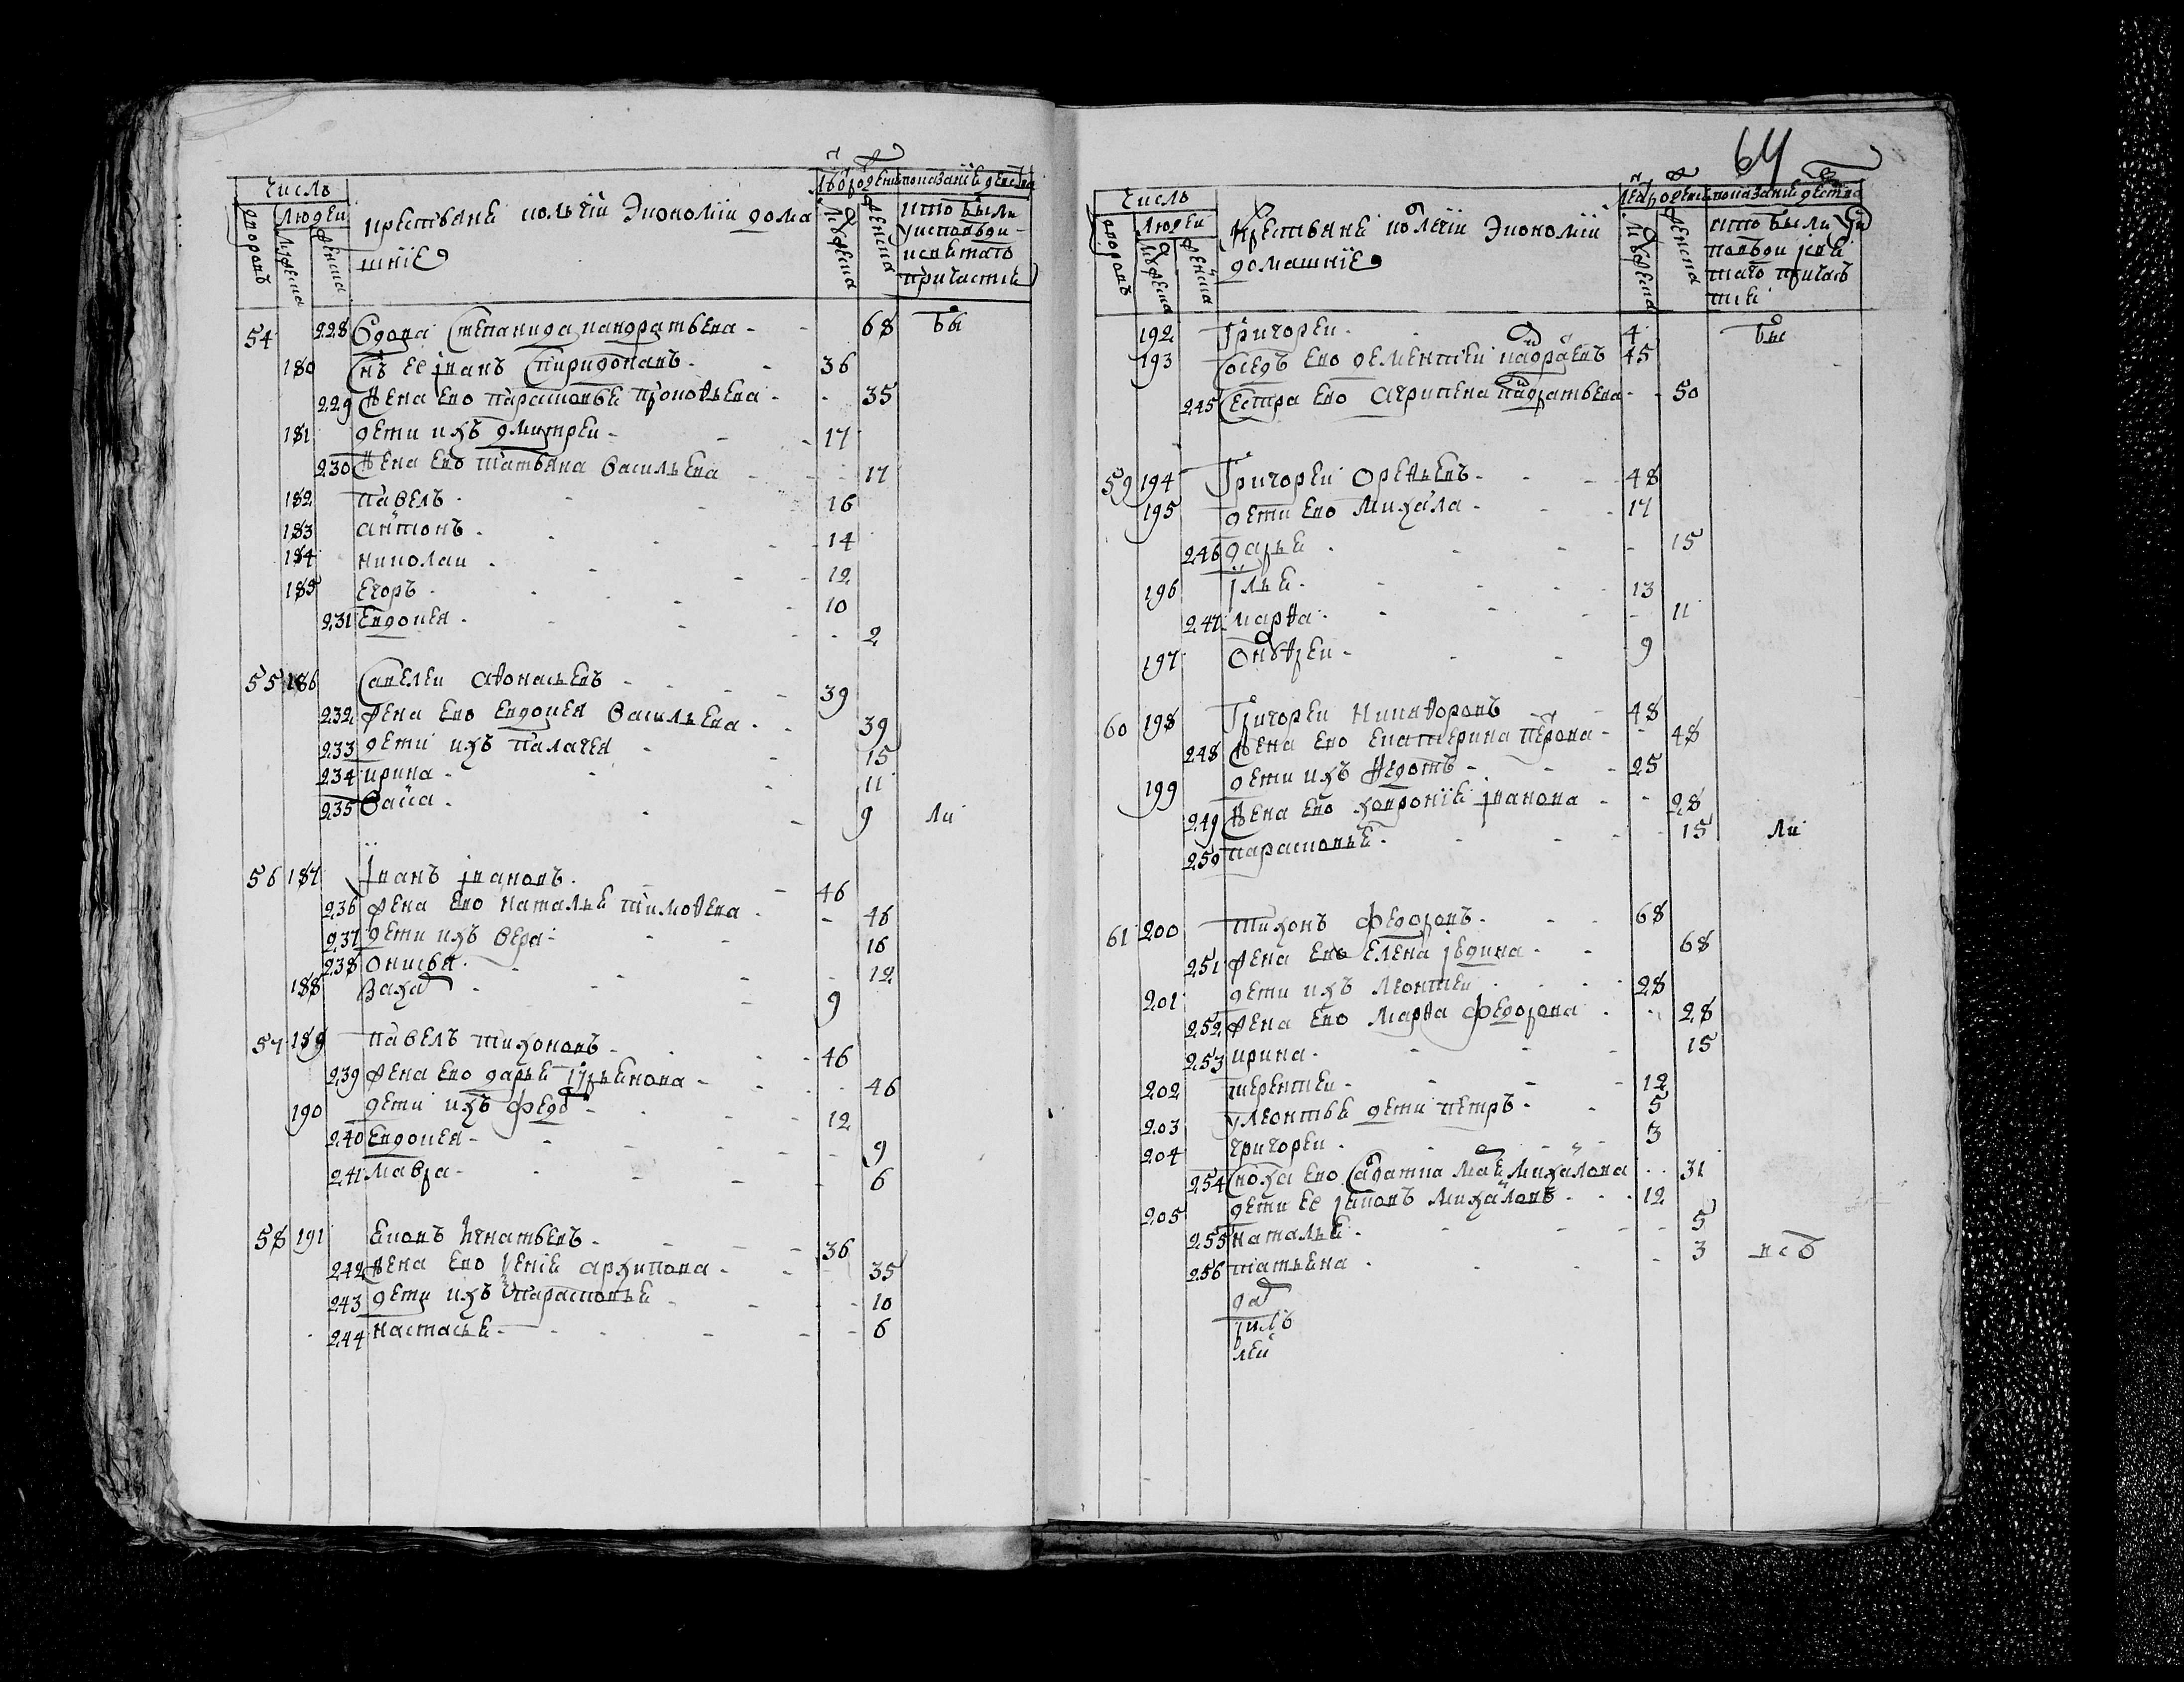 64
Число
людеи
дворовъ
мужеска
женска
крестьяне колегіи экономіи дома
шніе
мужеска
женска
кто были
у исповѣди
и святаго
причастия
54 228 Вдова Степанида Кандратьева - 68 бы
180 Снъ ее Іванъ Спиридоновъ - 36
229 Жена ево Парасковья Прокофьева - 35
181 дети ихъ Дмитреи - 17
230 Жена ево Татьяна Васильева 17
182 Павелъ - 16
183 Антонъ - 14
184 Николаи - 12
185 Егоръ - 10
231 Евдокея - 2
55 186 Савелеи Афонасьевъ - 39
232 Жена ево Евдокея Васильева - 39
233 дети ихъ Палагея - 15
234 Ирина - 11
235 Васса - 9 ли
56 187 Іванъ Івановъ - 46
236 Жена ево Наталья Тимофева - 46
237 дети ихъ Вера - 16
238 Онисья - 12
188 Захаръ - 9
57 189 Павелъ Тихоновъ - 46
239 Жена ево Дарья - 46
190 дети ихъ Федоръ - 12
240 Евдокея - 9
241 Мавра - 6
58 191 Игнатьевъ - 36
242 Жена ево Архипова - 35
243 дети ихъ Парасковья - 10
244 Настасья - 6
Число
людеи
дворовъ
мужеска
женска
Крестьяне колегіи экономіи
домашніе
мужеска
женска
кто были у и
повѣди і свя
таго причас
тия
192 Григореи - 4 бы
193 Соседъ ево Дементеи Кандраевъ 45
245 Сестра ево Агрипена Кандратьева - 50
59 194 Григореи Орефьевъ - 48
195 дети ево Михаила - 17
246 Дарья - 15
196 Илья - 13
247 Марфа - 11
197 Онуфреи - 9
60 198 Григореи Никифоровъ 48
248 Жена ево Екатерина Петрова - 48
199 дети ихъ Федотъ - 25
249 Жена ево Ховронія Іванова - 28
250 Парасковья - 15 ли
61 200 Тихонъ Федоровъ - 68
251 Жена ево Елена - 68
201 дети ихъ Леонтеи 28
252 Жена ево Марфа Федорова - 28
253 Ирина - 15
202 Терентеи - 12
203 у Леонтья дети Петръ - 5
204 Григореи - 3
254 Сноха ево Салдатка Михайлова 31
205 дети ее Іаковъ Михайловъ - 12
255 Наталья - 5
256 Татьяна - 3 всѣ